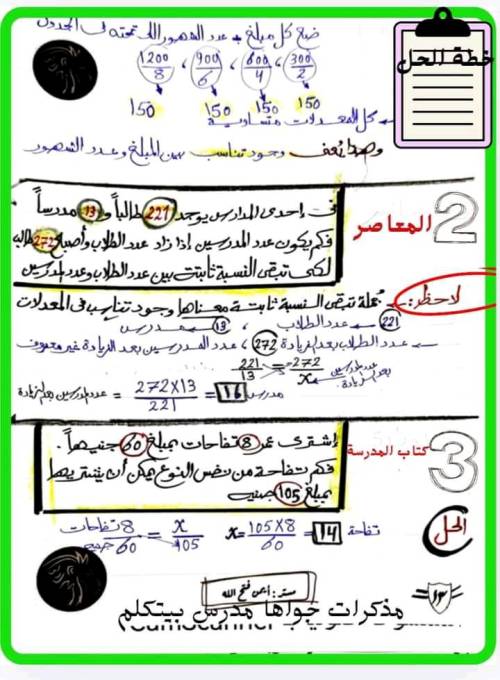 ضع كل مبلغ ÷ عدد الشهور اللى تحته فى الجدول
خطة الحل
300/2 ، 600/4 ، 900/6 ، 1200/8
150 150 150 150
كل المعدلات متساوية
وهذا يُعنى وجود تناسب بين المبلغ وعدد الشهور
2 المعاصر
فى إحدى المدارس يوجد 221 طالباً و 13 مدرساً
فكم يكون عدد المدرسين إذا زاد عدد الطلاب وأصبح 272 طالب
لكى تبقى النسبة ثابتة بين عدد الطلاب وعدد المدرسين
لاحظ: جملة تبقى النسبة ثابتة معناها وجود تناسب فى المعدلات
221 عدد الطلاب ، 13 مدرس
عدد الطلاب بعد الزيادة 272 ، عدد المدرسين بعد الزيادة غير معروف
221/13 = 272/x عدد المدرسين بعد الزيادة
عدد المدرسين بعد الزيادة = 272×13/221 = 16 مدرس
3 كتاب المدرسة
إشترى عمر 8 تفاحات بمبلغ 60 جنيهاً.
فكم تفاحة من نفس النوع يمكن أن يشتريها
بمبلغ 105 جنيه
الحل
8 تفاحات/60 جنيه = x/105 x = 105×8/60 = 14 تفاحة
مستر: أيمن فتح الله
١٣
مذكرات جواها مدرس بيتكلم